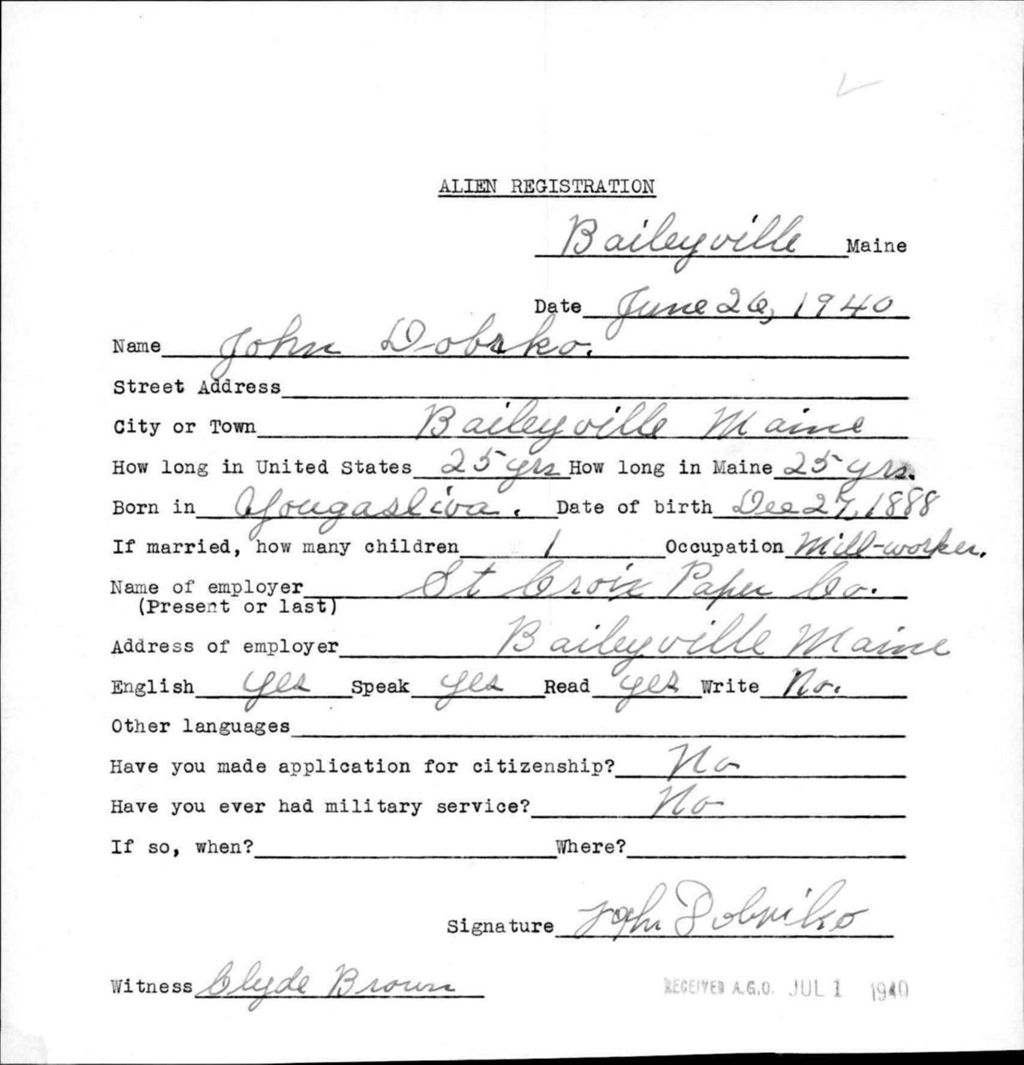 ALIEN REGISTRATION
Baileyville Maine
Date June 26, 1940
Name John Dobrko.
Street Address
City or Town Baileyville Maine
How long in United States 25 yrs How long in Maine 25 yrs.
Born in Yougasliva. Date of birth Dec 27, 1888
If married, how many children 1 Occupation Mill-worker.
Name of employer St Croix Paper Co.
(Present or last)
Address of employer Baileyville Maine
English yes Speak yes Read yes Write No.
Other languages
Have you made application for citizenship? No
Have you ever had military service? No
If so, when? Where?
Signature John Dobriko
Witness Clyde Brown
RECEIVED A.G.O. JUL 1 1940